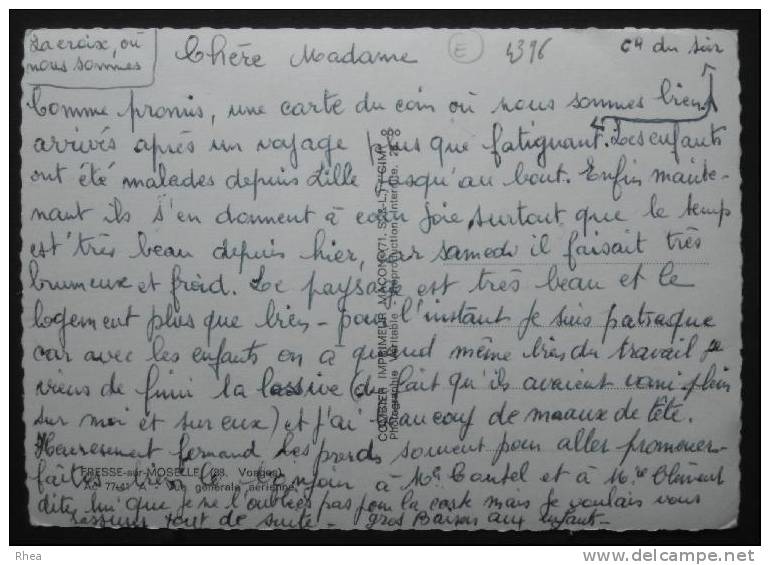 La croix, où
nous sommes
Chère Madame
E
4396
ce du soir
Comme promis, une carte du coin où nous sommes bien
arrivés après un voyage plus que fatiguant. Les enfants
ont été malades depuis Lille jusqu'au bout. Enfin mainte-
nant ils s'en donnent à cœur joie, surtout que le temp
est très beau depuis hier, car samedi il faisait très
brumeux et froid. Le paysage est très beau et le
logement plus que bien - pour l'instant je suis patraque
car avec les enfants on a quand même bien du travail je
viens de finir la lessive (du fait qu'ils avaient vomi plein
sur moi et sur eux) et j'ai beaucoup de maux de tête.
Heureusement fernand les prends souvent pour aller promener
faites bien le à Me et à Me Clément
dites lui que je ne l'oublies pas pour la carte mais je voulais vous
rassurer tout de suite - gros Baisers aux enfants -
COMBIER IMPRIMEUR MACON (71. S.-&-L.) "CIM"
Photographie Véritable - Reproduction Interdite.
FRESSE-sur-MOSELLE (88. Vosges)
Vue générale aérienne
Rhea
www.delcampe.net